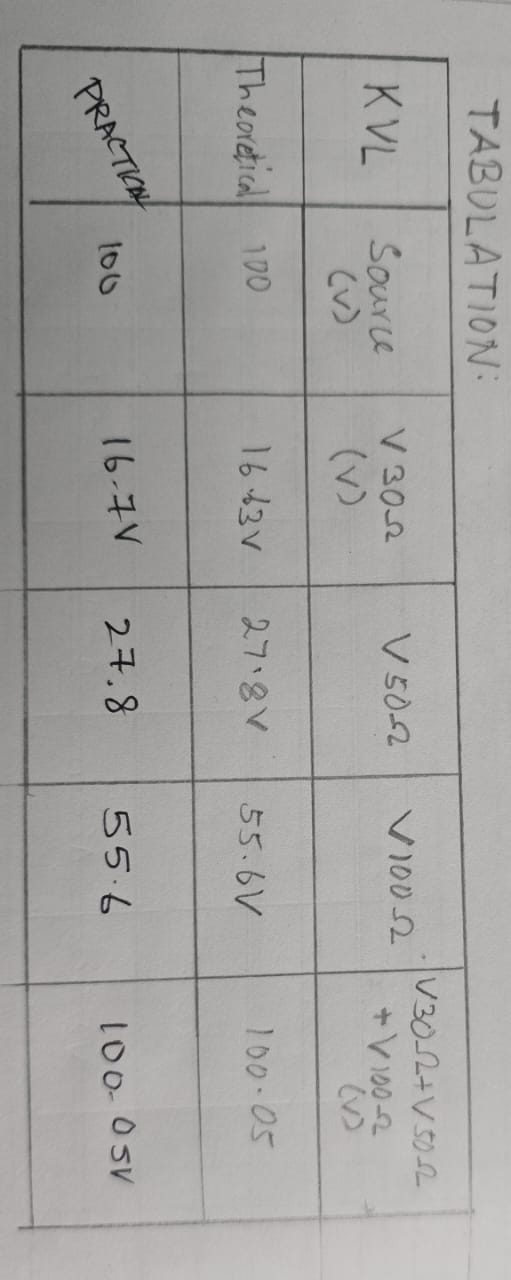 TABULATION:
KVL
Source
(V)
V30Ω
(V)
V50Ω
V100Ω
V30Ω+V50Ω
+V100Ω
(V)
Theoretical
100
16.63V
27.8V
55.6V
100.05
PRACTICAL
100
16.7V
27.8
55.6
100.05V